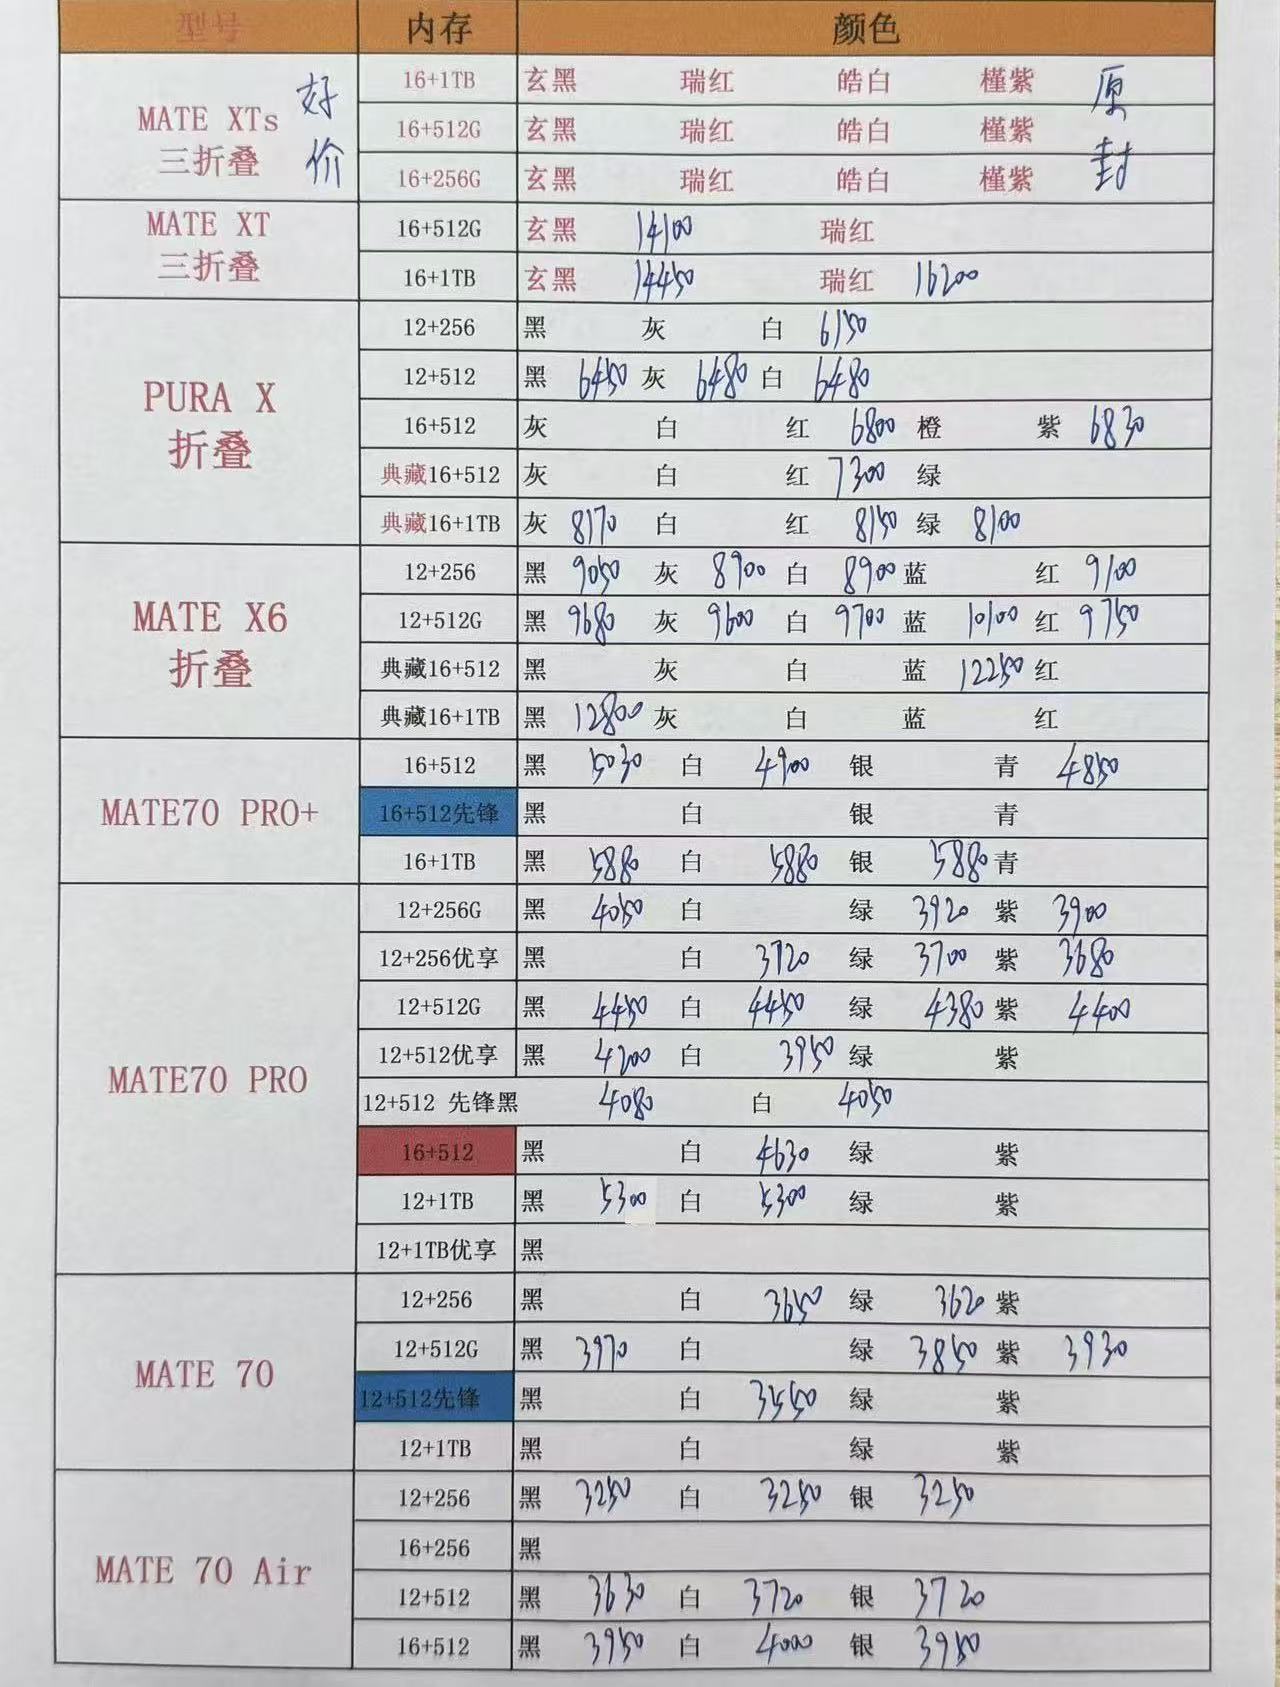 型号 内存 颜色
MATE XTs 三折叠 好价 原封
16+1TB 玄黑 瑞红 皓白 槿紫
16+512G 玄黑 瑞红 皓白 槿紫
16+256G 玄黑 瑞红 皓白 槿紫
MATE XT 三折叠
16+512G 玄黑 14100 瑞红
16+1TB 玄黑 14450 瑞红 16200
PURA X 折叠
12+256 黑 灰 白 6150
12+512 黑 6450 灰 6480 白 6480
16+512 灰 白 红 6800 橙 紫 6830
典藏16+512 灰 白 红 7300 绿
典藏16+1TB 灰 8170 白 红 8150 绿 8100
MATE X6 折叠
12+256 黑 9050 灰 8900 白 8900 蓝 红 9100
12+512G 黑 9680 灰 9600 白 9700 蓝 10100 红 9750
典藏16+512 黑 灰 白 蓝 12250 红
典藏16+1TB 黑 12800 灰 白 蓝 红
MATE70 PRO+
16+512 黑 5030 白 4900 银 青 4850
16+512先锋 黑 白 银 青
16+1TB 黑 5880 白 5880 银 5880 青
MATE70 PRO
12+256G 黑 4050 白 绿 3920 紫 3900
12+256优享 黑 白 3720 绿 3700 紫 3680
12+512G 黑 4450 白 4450 绿 4380 紫 4400
12+512优享 黑 4200 白 3950 绿 紫
12+512 先锋黑 4080 白 4050
16+512 黑 白 4630 绿 紫
12+1TB 黑 5300 白 5300 绿 紫
12+1TB优享 黑
MATE 70
12+256 黑 白 3650 绿 3620 紫
12+512G 黑 3970 白 绿 3850 紫 3930
12+512先锋 黑 白 3550 绿 紫
12+1TB 黑 白 绿 紫
MATE 70 Air
12+256 黑 3250 白 3250 银 3250
16+256 黑
12+512 黑 3630 白 3720 银 3720
16+512 黑 3950 白 4000 银 3950